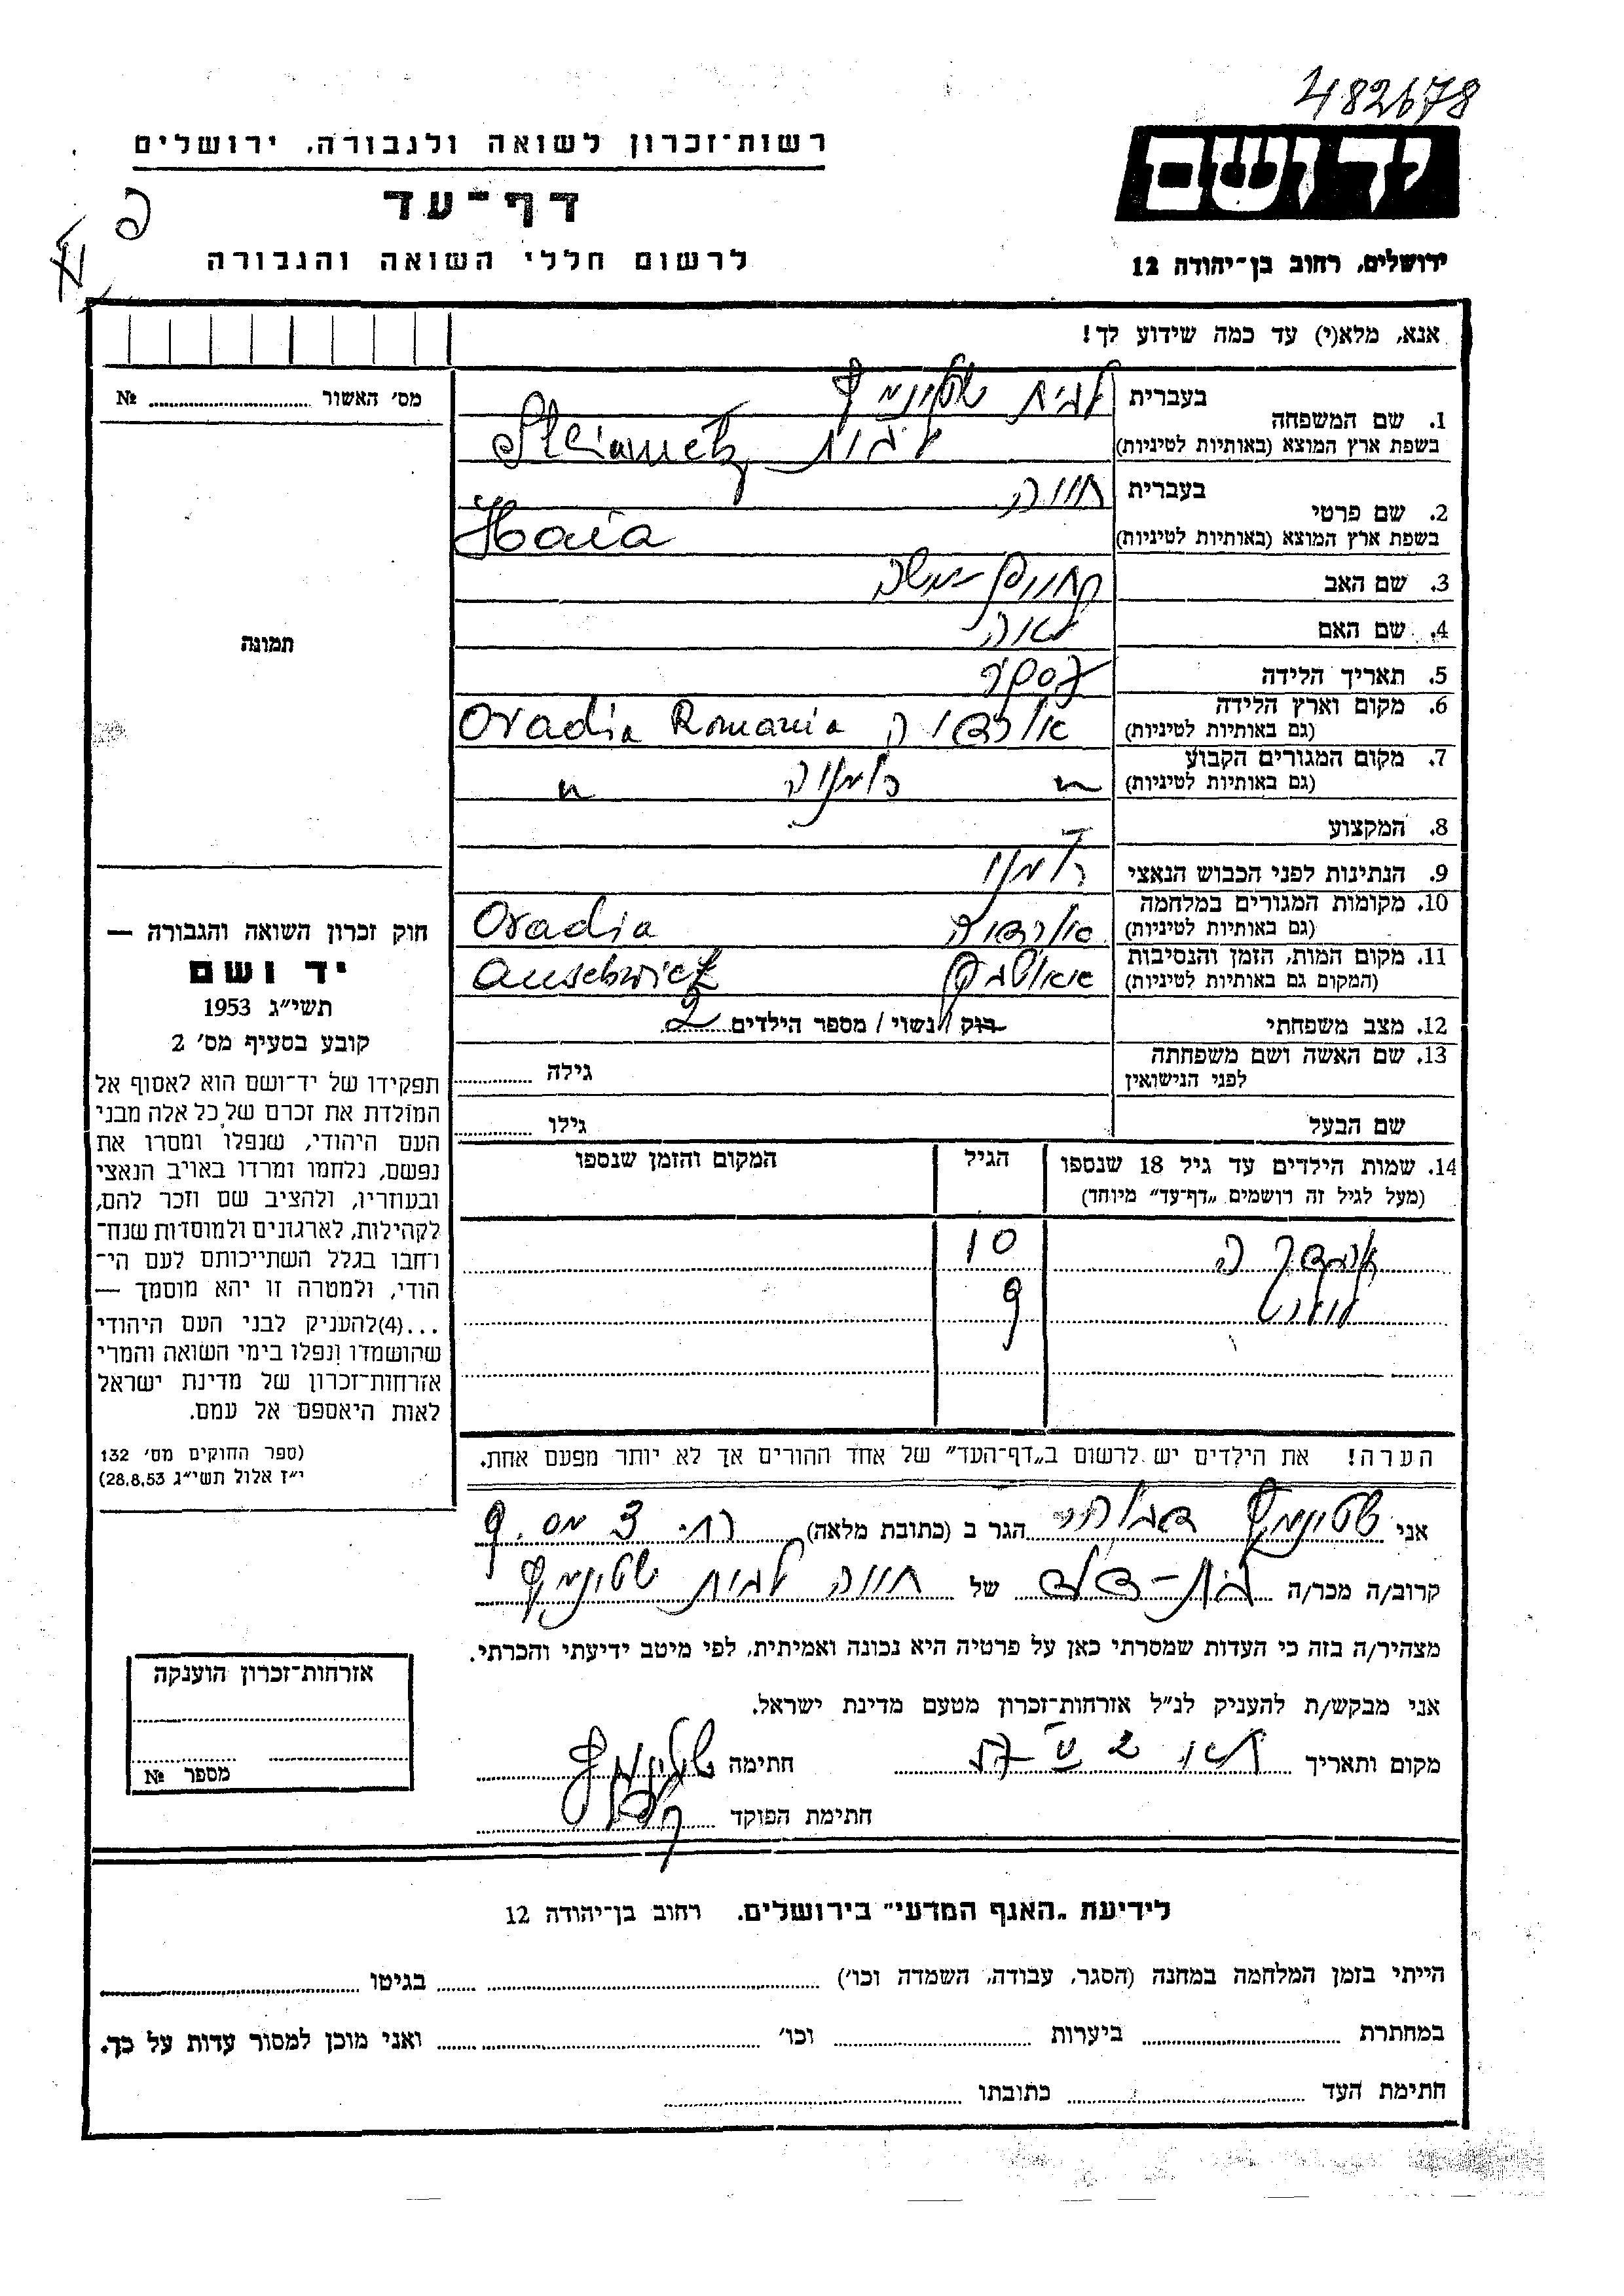 482678
יד ושם
ירושלים, רחוב בן־יהודה 12
רשות־זכרון לשואה ולגבורה, ירושלים
דף־עד
לרשום חללי השואה והגבורה
אנא, מלא(י) עד כמה שידוע לך!
מס׳ האשור №
תמונה
1. שם המשפחה בעברית לבית שטיינמץ
בשפת ארץ המוצא (באותיות לטיניות) לבית Steiametz
2. שם פרטי בעברית חויה
בשפת ארץ המוצא (באותיות לטיניות) Haia
3. שם האב משה
4. שם האם לאה
5. תאריך הלידה
6. מקום וארץ הלידה
(גם באותיות לטיניות) אורדיה Oradia Romania
7. מקום המגורים הקבוע
(גם באותיות לטיניות) " רומניה "
8. המקצוע
9. הנתינות לפני הכבוש הנאצי רומני
10. מקומות המגורים במלחמה
(גם באותיות לטיניות) אורדיה Oradia
11. מקום המות, הזמן והנסיבות
(המקום גם באותיות לטיניות) Auschwitz
12. מצב משפחתי רוק / נשוי / מספר הילדים 2
13. שם האשה ושם משפחתה
לפני הנישואין גילה
שם הבעל גילו
14. שמות הילדים עד גיל 18 שנספו
(מעל לגיל זה רושמים „דף־עד״ מיוחד)
הגיל
המקום והזמן שנספו
10
9
הערה! את הילדים יש לרשום ב„דף־העד״ של אחד ההורים אך לא יותר מפעם אחת.
חוק זכרון השואה והגבורה —
יד ושם
תשי״ג 1953
קובע בסעיף מס׳ 2
תפקידו של יד־ושם הוא לאסוף אל
המולדת את זכרם של כל אלה מבני
העם היהודי, שנפלו ומסרו את
נפשם, נלחמו ומרדו באויב הנאצי
ובעוזריו, ולהציב שם וזכר להם,
לקהילות, לארגונים ולמוסדות שנח־
רחבו בגלל השתייכותם לעם הי־
הודי, ולמטרה זו יהא מוסמך —
...(4)להעניק לבני העם היהודי
שהושמדו ונפלו בימי השואה והמרי
אזרחות־זכרון של מדינת ישראל
לאות היאספם אל עמם.
(ספר החוקים מס׳ 132
י״ז אלול תשי״ג 28.8.53)
אני שטיינמץ הגר ב (כתובת מלאה)
קרוב/ה מכר/ה בת-דוד של חויה לבית שטיינמץ
מצהיר/ה בזה כי העדות שמסרתי כאן על פרטיה היא נכונה ואמיתית, לפי מיטב ידיעתי והכרתי.
אני מבקש/ת להעניק לנ״ל אזרחות־זכרון מטעם מדינת ישראל.
מקום ותאריך חתימה שטיינמץ
חתימת הפוקד
אזרחות־זכרון הוענקה
מספר №
לידיעת „האגף המדעי״ בירושלים. רחוב בן־יהודה 12
הייתי בזמן המלחמה במחנה (הסגר, עבודה, השמדה וכו׳) בגיטו
במחתרת ביערות וכו׳ ואני מוכן למסור עדות על כך.
חתימת העד כתובתו